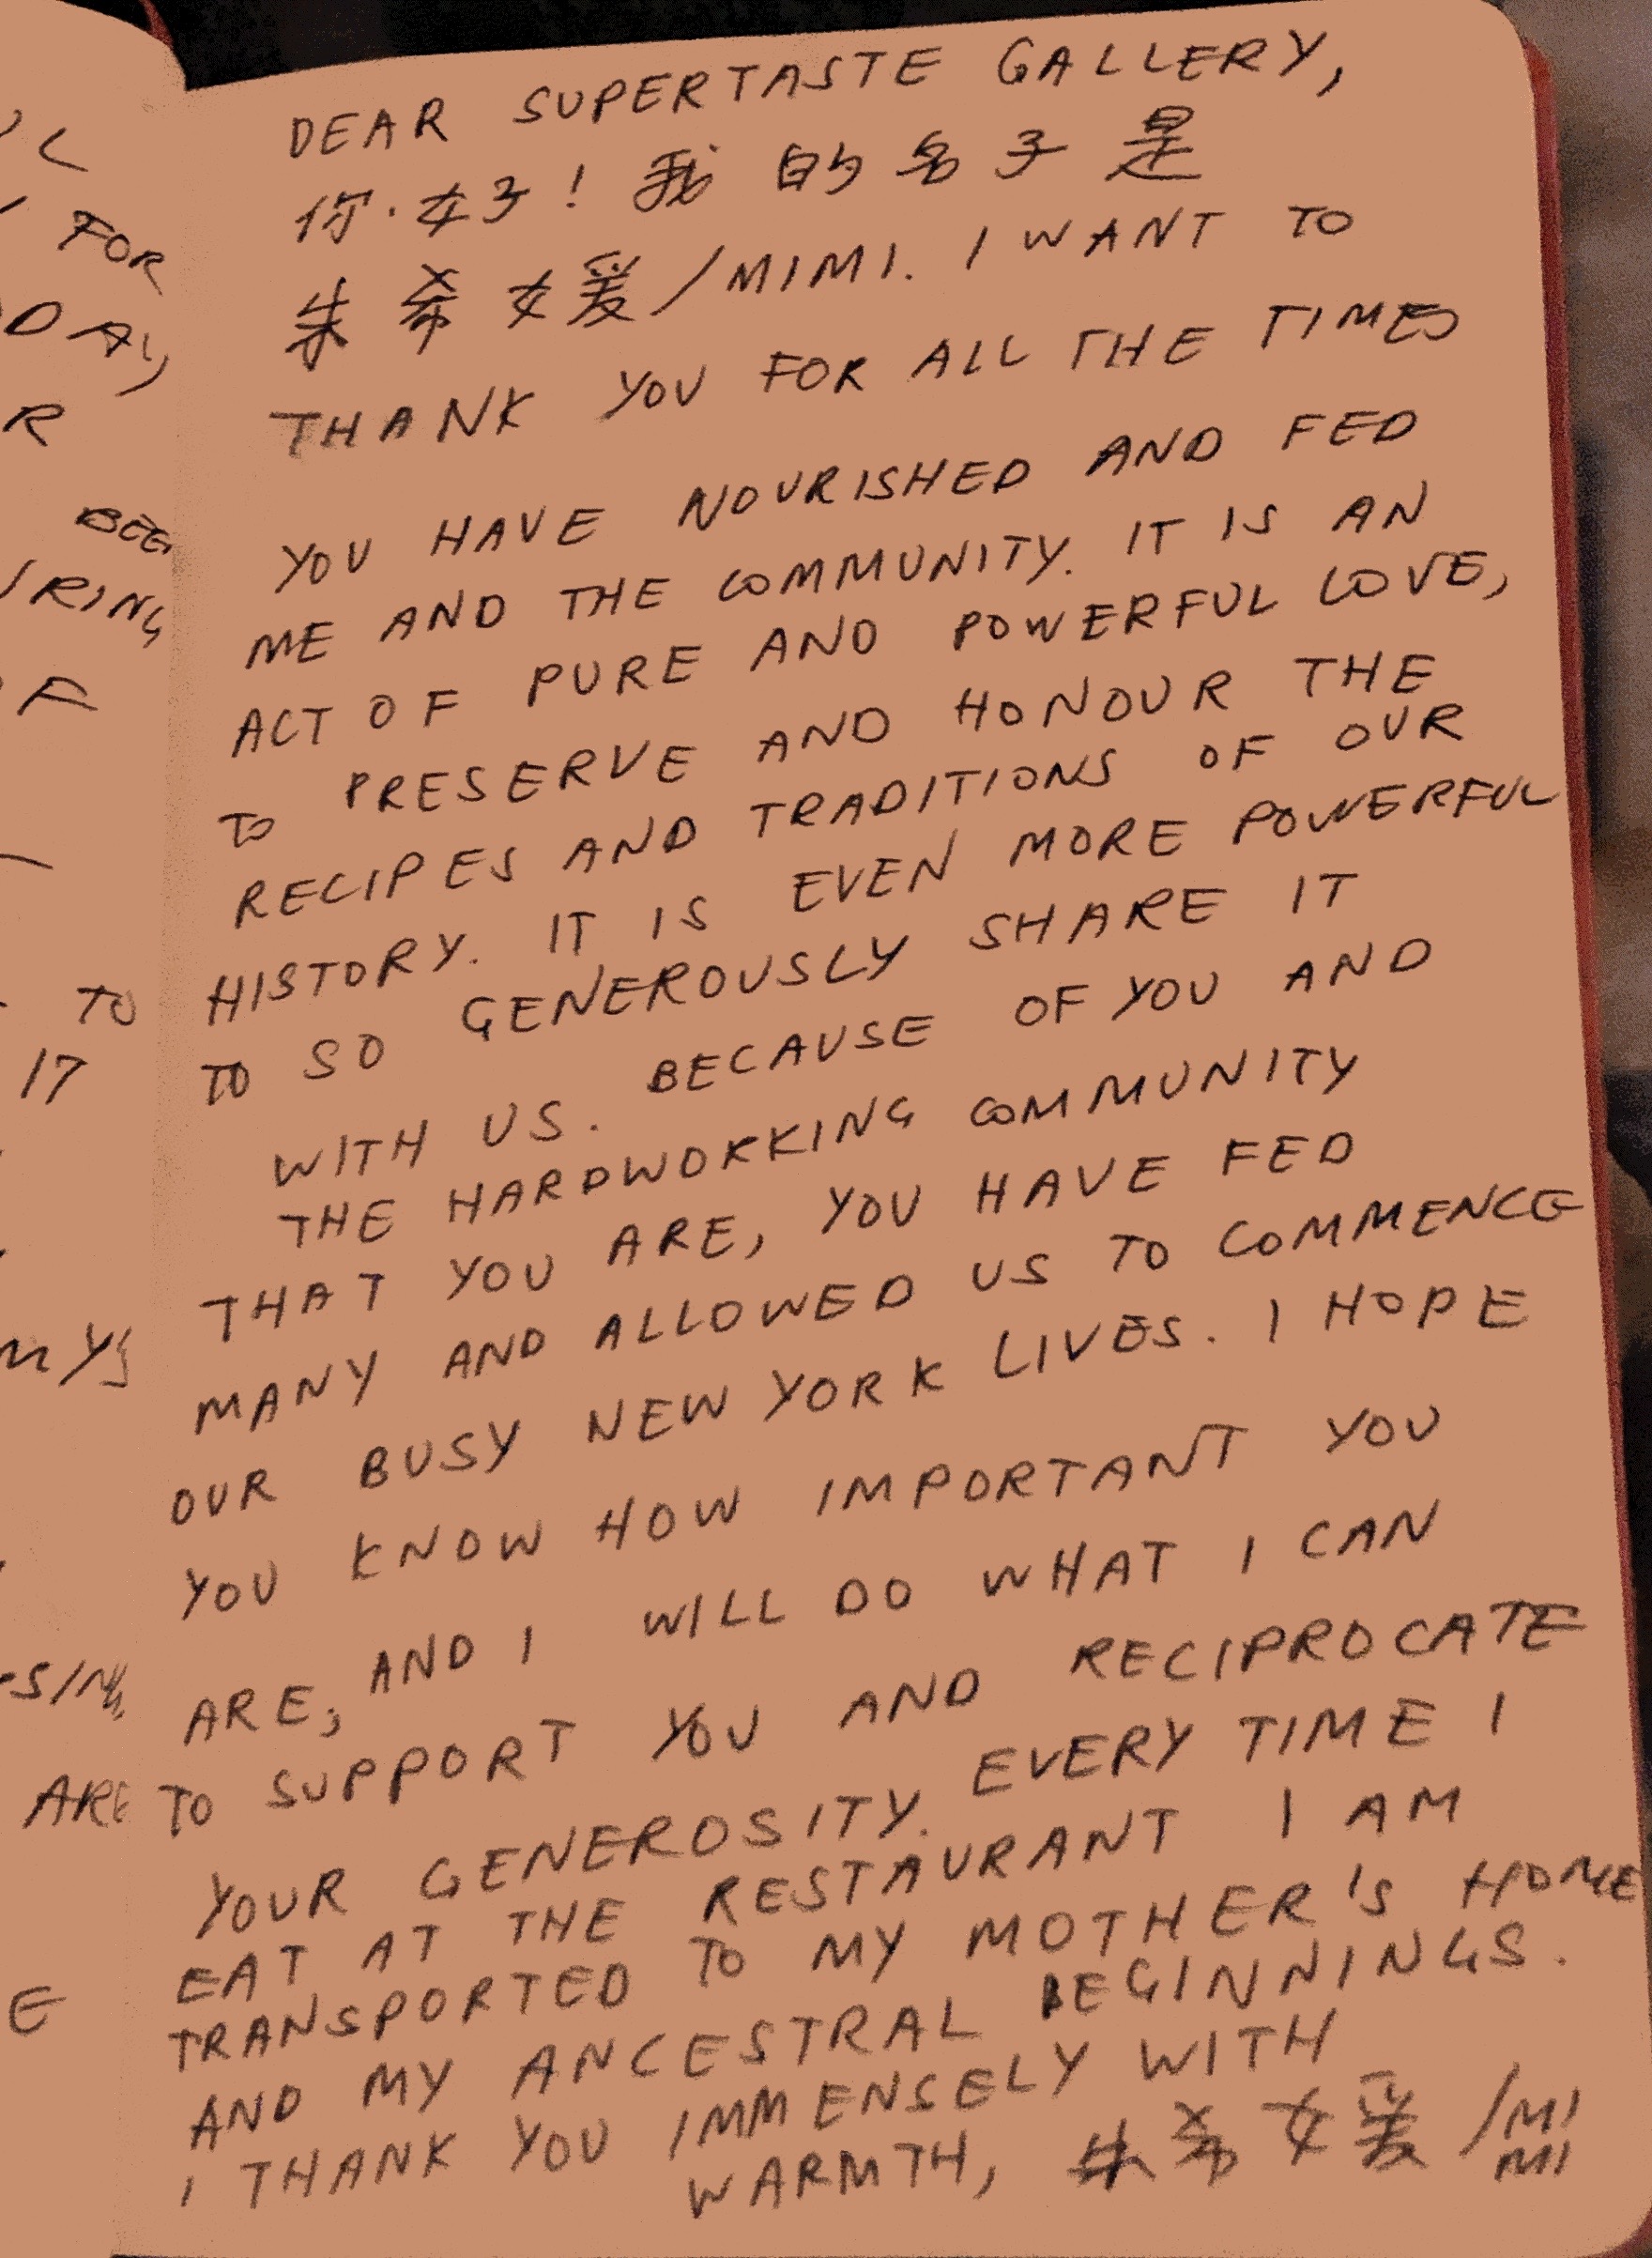 DEAR SUPERTASTE GALLERY,
你好! 我的名子是
朱希媛/MIMI. I WANT TO
THANK YOU FOR ALL THE TIMES
YOU HAVE NOURISHED AND FED
ME AND THE COMMUNITY. IT IS AN
ACT OF PURE AND POWERFUL LOVE,
TO PRESERVE AND HONOUR THE
RECIPES AND TRADITIONS OF OUR
HISTORY. IT IS EVEN MORE POWERFUL
TO SO GENEROUSLY SHARE IT
WITH US. BECAUSE OF YOU AND
THE HARDWORKING COMMUNITY
THAT YOU ARE, YOU HAVE FED
MANY AND ALLOWED US TO COMMENCE
OUR BUSY NEW YORK LIVES. I HOPE
YOU KNOW HOW IMPORTANT YOU
ARE, AND I WILL DO WHAT I CAN
TO SUPPORT YOU AND RECIPROCATE
YOUR GENEROSITY. EVERY TIME I
EAT AT THE RESTAURANT I AM
TRANSPORTED TO MY MOTHER'S HOME
AND MY ANCESTRAL BEGINNINGS.
I THANK YOU IMMENSELY WITH
WARMTH, 朱希媛/MI
MI
FOR
TO
17
ARE